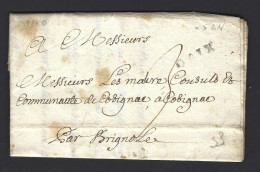 A Messieurs
D'AIX
Messieurs Les maire Consuls &
Communauté de Cotignac a Cotignac
Par Brignole